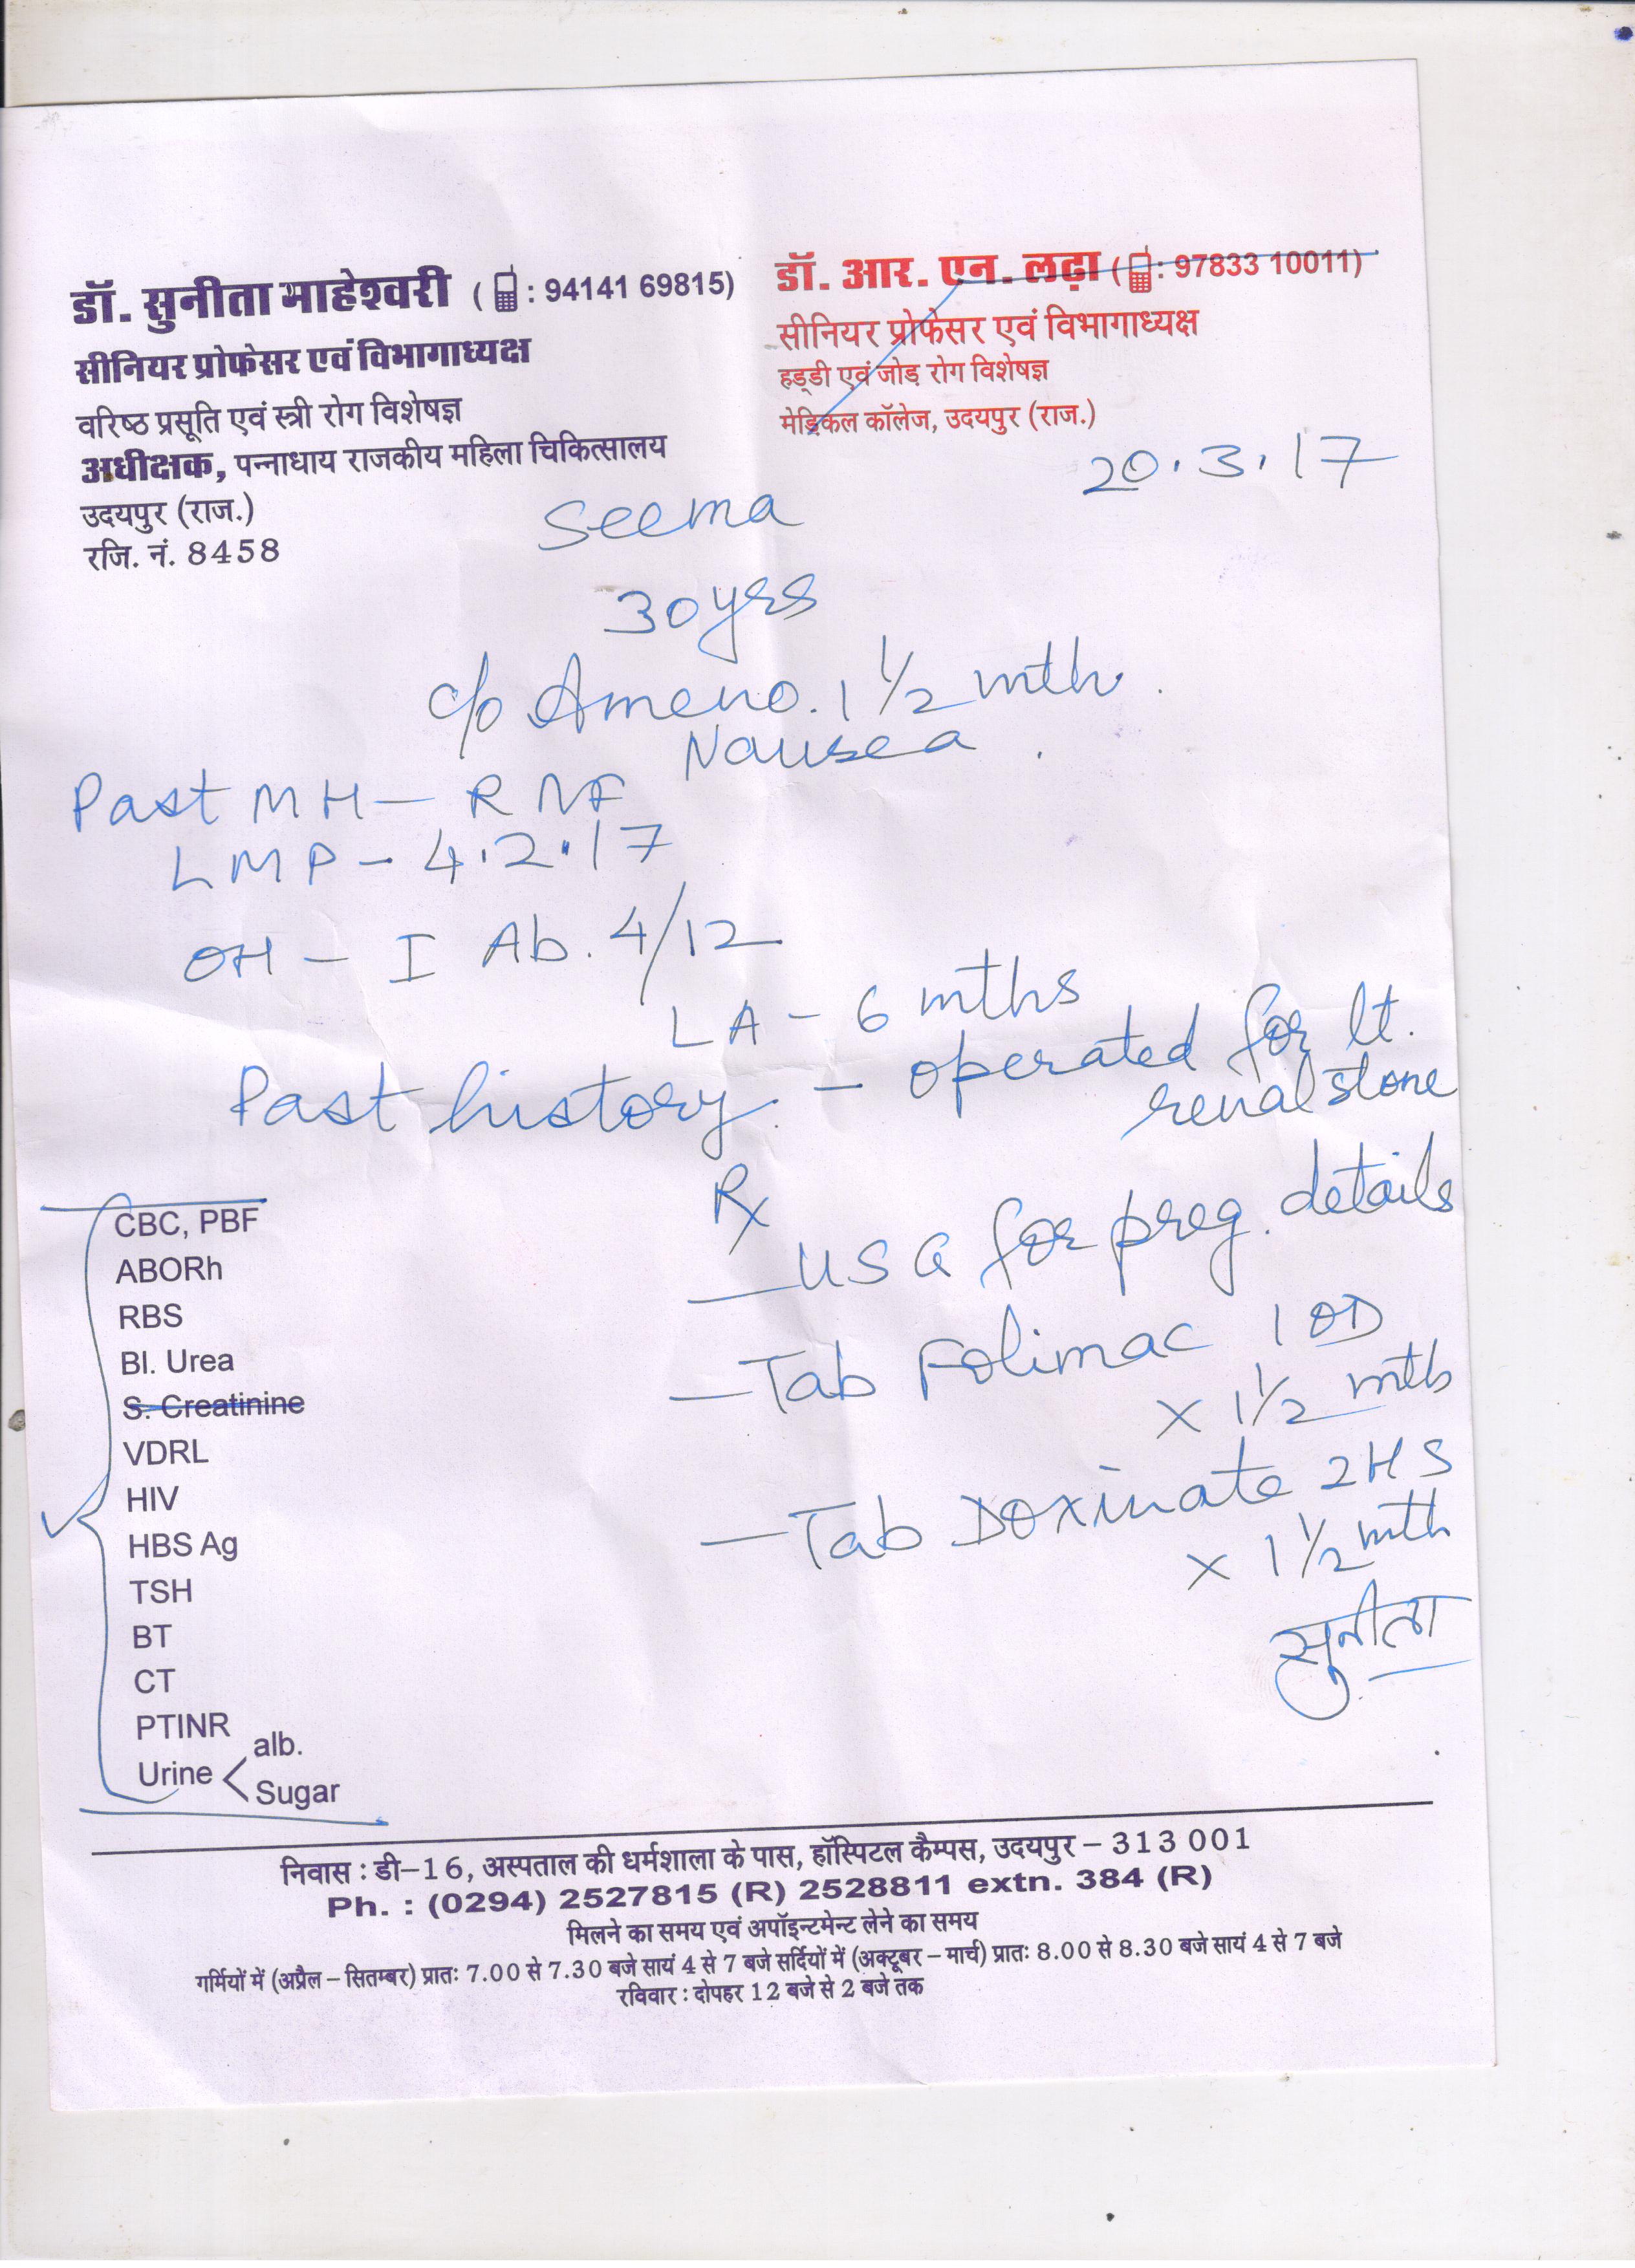 डॉ. सुनीता माहेश्वरी ( : 94141 69815)
सीनियर प्रोफेसर एवं विभागाध्यक्ष
वरिष्ठ प्रसूति एवं स्त्री रोग विशेषज्ञ
अधीक्षक, पन्नाधाय राजकीय महिला चिकित्सालय
उदयपुर (राज.)
रजि. नं. 8458
डॉ. आर. एन. लढ़ा ( : 97833 10011)
सीनियर प्रोफेसर एवं विभागाध्यक्ष
हड्डी एवं जोड़ रोग विशेषज्ञ
मेडिकल कॉलेज, उदयपुर (राज.)
20.3.17
Seema
30yrs
c/o Ameno. 1 1/2 mth.
Nausea
Past MH - R NF
LMP - 4.2.17
OH - I Ab. 4/12
LA - 6 mths
Past history. - operated for lt.
renal stone
Rx
- USG for preg. details
- Tab Folimac 1 OD
x 1 1/2 mth
- Tab Doxinate 2HS
x 1 1/2 mth
सुनीता
CBC, PBF
ABORh
RBS
Bl. Urea
S. Creatinine
VDRL
HIV
HBS Ag
TSH
BT
CT
PTINR
Urine < alb.
Sugar
निवास : डी-16, अस्पताल की धर्मशाला के पास, हॉस्पिटल कैम्पस, उदयपुर - 313 001
Ph. : (0294) 2527815 (R) 2528811 extn. 384 (R)
मिलने का समय एवं अपॉइन्टमेन्ट लेने का समय
गर्मियों में (अप्रैल - सितम्बर) प्रातः 7.00 से 7.30 बजे सायं 4 से 7 बजे सर्दियों में (अक्टूबर - मार्च) प्रातः 8.00 से 8.30 बजे सायं 4 से 7 बजे
रविवार : दोपहर 12 बजे से 2 बजे तक